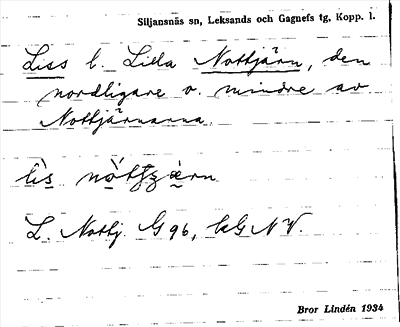 Siljansnäs sn, Leksands och Gagnefs tg, Kopp. l.
Liss l. Lilla Nottjärn, den
nordligare o. mindre av
Nottjärnarna.
L. Nottj. G 96,
Bror Lindén 1934